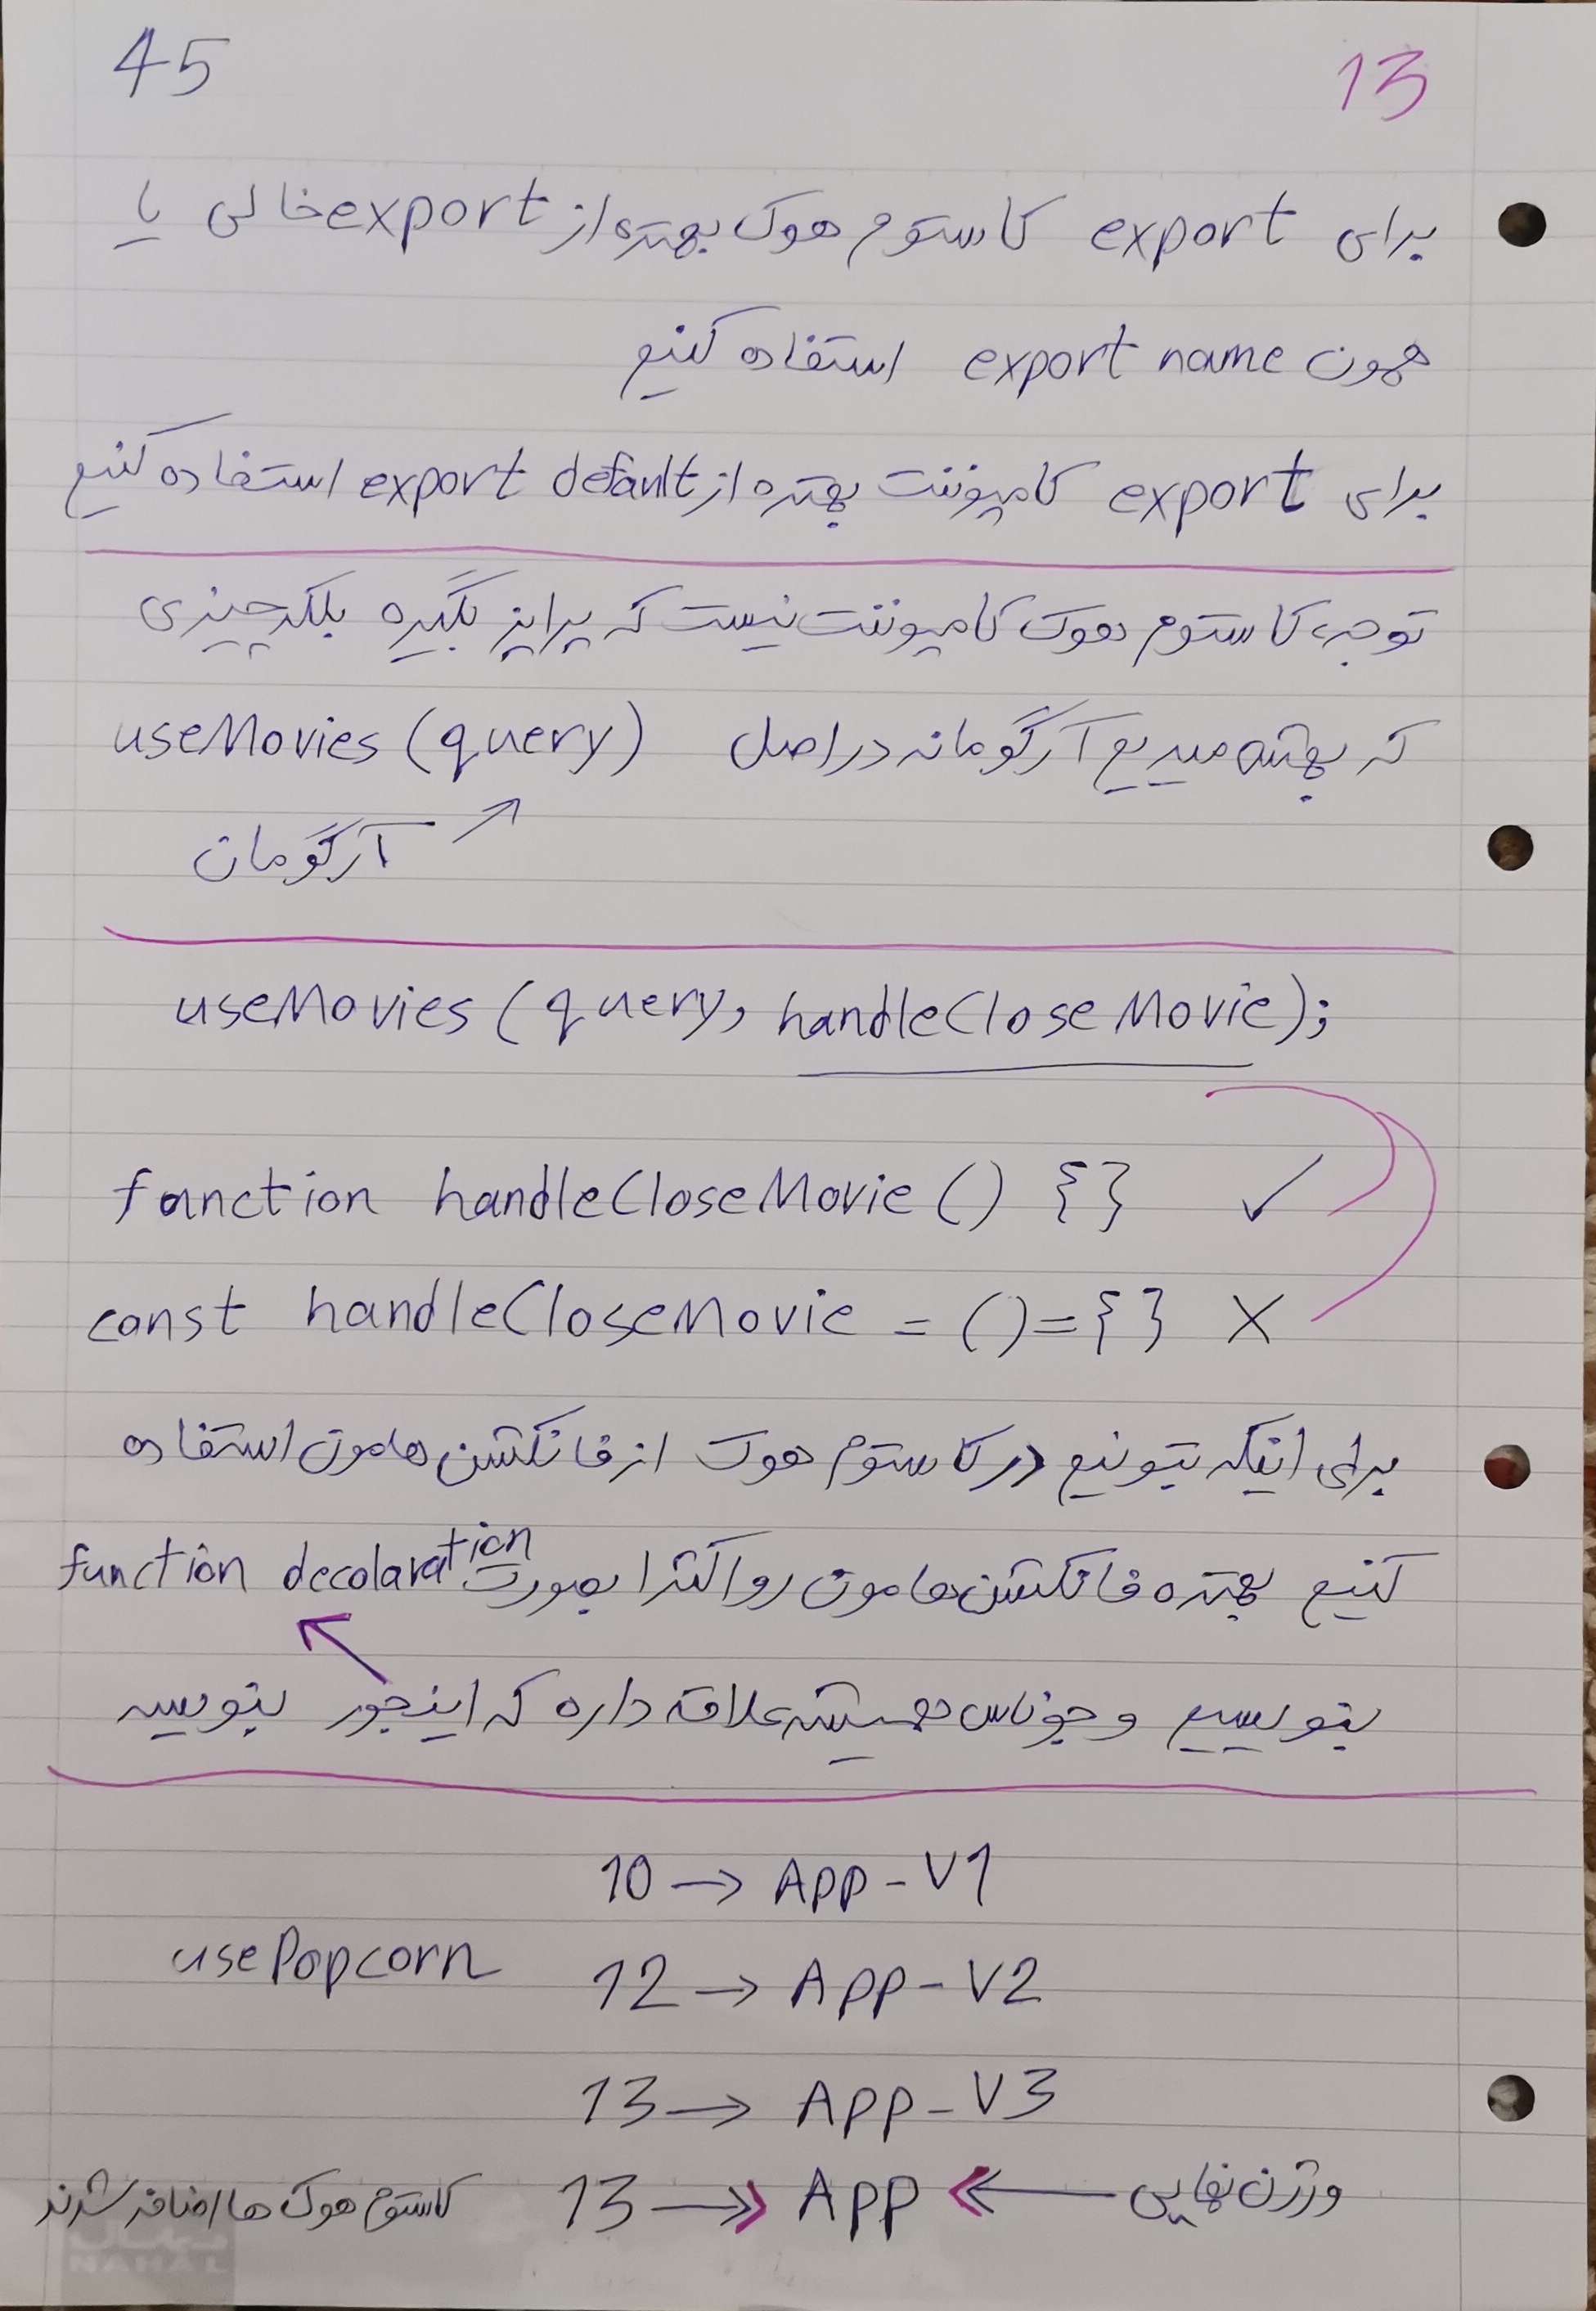 45
13
برای export کاستوم هوک بهتره از export خالی یا
همون export name استفاده کنیم
برای export کامپوننت بهتره از export default استفاده کنیم
توجه کاستوم هوک کامپوننت نیست که پراپز بگیره بلکه چیزی
که بهش میدیم آرگومانه در اصل useMovies (query)
آرگومان
useMovies (query, handleCloseMovie);
function handleCloseMovie () {} ✓
const handleCloseMovie = ()={} X
برای اینکه بتونیم در کاستوم هوک از فانکشن هامون استفاده
کنیم بهتره فانکشن هامون رو اکثرا بصورت function decolaration
بنویسیم و جوناس همیشه علاقه داره که اینجور بنویسه
10 → App-V1
usePopcorn 12 → App-V2
13 → App-V3
کاستوم هوک ها اضافه شدند 13 → App ← ورژن نهایی
NAHAL